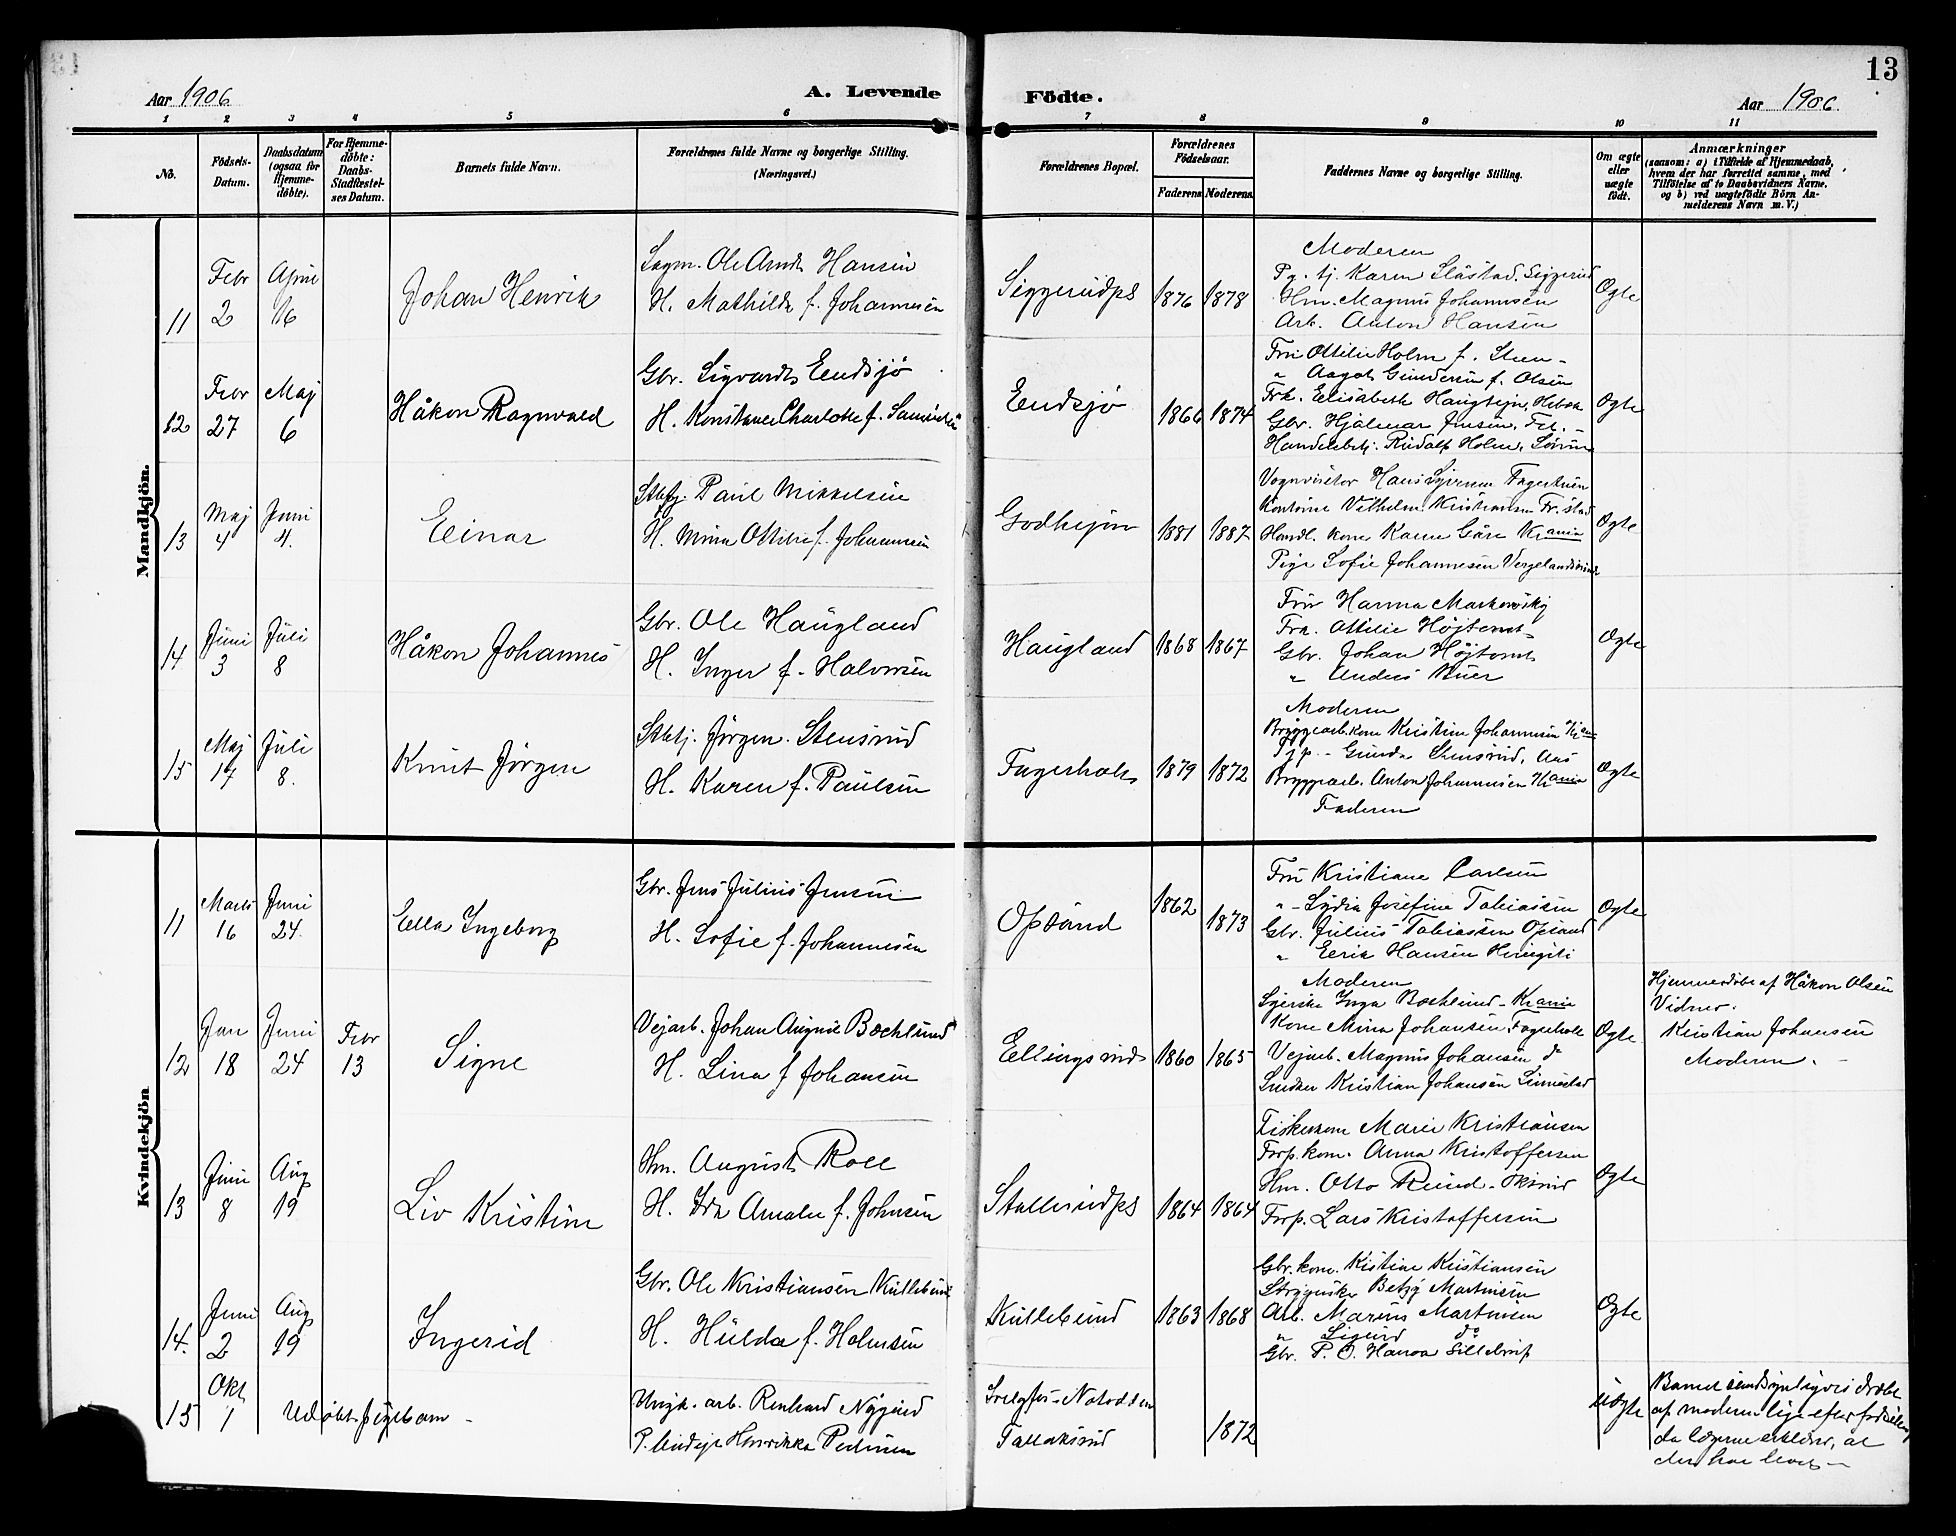 13
Aar 1906
A. Levende
Födte.
Aar 1906.
1 2 3 4 5 6 7 8 9 10 11
No.
Födsels-Datum.
Daabsdatum (ogsaa for Hjemme-döbte).
For Hjemme-döbte: Daabs-Stadfæstel-ses Datum.
Barnets fulde Navn.
Forældrenes fulde Navne og borgerlige Stilling. (Næringsvei.)
Forældrenes Bopæl.
Forældrenes Födselsaar.
Faderens Moderens
Faddernes Navne og borgerlige Stilling.
Om ægte eller uægte födt.
Anmærkninger
(saasom: a) i Tilfælde af Hjemmedaab,
hvem der har forrettet samme, med
Tilföielse af to Daabsvidners Navne,
og b) ved uægtefödte Börn An-
melderens Navn m. V.)
Mandkjön.
11 Febr 2 April 16 Johan Henrik
Sagm. Ole Arndt Hansen
H. Mathilde f. Johannesen
Siggerudpl 1876 1878
Moderen
Pg. tj. Karen Slåstad, Siggerud
Hm. Magnus Johannesen
Arb. Anton Hansen
Ægte
12 Febr 27 Maj 6 Håkon Ragnvald
Gbr. Sigvardt Endsjö
H. Konstance Charlotte f.
Endsjö 1866 1874
Fru Ottilie Holm f. Steen
" Aagot Gundersen f. Olsen
Frk. Elisabeth
Gbr. Hjalmar Jensen,
Handelsbetj. Rudolf Holm,
Ægte
13 Maj 4 Juni 4. Einar
Stbtj. Paul Mikkelsen
H. Mina Ottilie f. Johannesen
Godhejm 1881 1887
Vognvisitør Hans Syversen
Vilhelm Kristiansen Fr.stad
Handl. kone Karen Kr.ania
Pige Sofie Johannesen
Ægte
14 Juni 3 Juli 8 Håkon Johannes
Gbr. Ole Haugland
H. Inger f. Halvorsen
Haugland 1868 1867
Fru Hanna
Frk. Ottilie Höjtomt
Gbr. Johan Höjtomt
" Anders Buer
Ægte
15 Maj 17 Juli 8. Knut Jörgen
Stbtj. Jörgen Stensrud
H. Karen f. Paulsen
Fagerholt 1879 1872
Moderen
Bryggearb.kone Kristine Johannesen Kr.ania
Gunda Stensrud, Aas
Bryggearb. Anton Johannesen Kr.ania
Faderen
Ægte
Kvindekjön
11 Marts 16 Juni 24. Ella Ingeborg
Gbr. Jens Julius Jensen
H. Sofie f. Johannesen
Opsand 1862 1873
Fru Kristiane Carlsen
" Lydia Josefine Tobiassen
Gbr. Julius Tobiassen Opsand
" Erik Hansen
Ægte
12 Jan 18 Juni 24 Febr 13 Signe
Vejarb. Johan August Bocklund
H. Lina f Johansen
Ellingsrud 1860 1865
Moderen
Syerske Inga Bocklund Kr.ania
Kone Mina Johansen Fagerholt
Vejarb. Magnus Johansen do
Snedker Kristian Johansen
Ægte
Hjemmedöbt af Håkon Olsen
Vidner:
Kristian Johansen
Moderen.
13 Juni 8 Aug 19 Liv Kristine
Hm. August Roll
H. Ida Amalie f. Johnsen
Stallerudpl 1864 1864
Fiskerkone Marie Kristiansen
Forp.kone Anna Kristoffersen
Hm. Otto Rund
Forp. Lars Kristoffersen
Ægte
14. Juni 2 Aug 19 Ingerid
Gbr. Ole Kristiansen Kullebund
H. Hulda f. Holmsen
Kullebund 1863 1868
Gbr.kone Kistine Kristiansen
Strygerske Betzy Martinsen
Arb. Marius Martinsen
" Sigurd do
Gbr. P. O. Hanoa Sillebråt
Ægte
15 Okt 1 Udöbt pigebarn
Ungk. arb. Reinhard Nygård
P. Henrikka Pedersen
Svelgfos Notodden
Tallaksrud
1872
Uægte
Barnet sandsynligvis dræbt
af moderen lige efter födselen,
da lægerne erklærer, at
det har levet